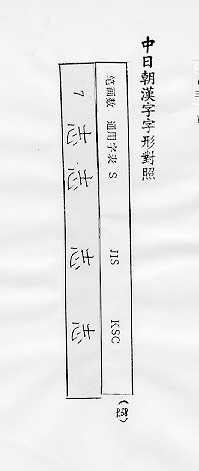 中日朝漢字字形對照
笔画数 通用字表 S JIS KSC
7 志 志 志 志